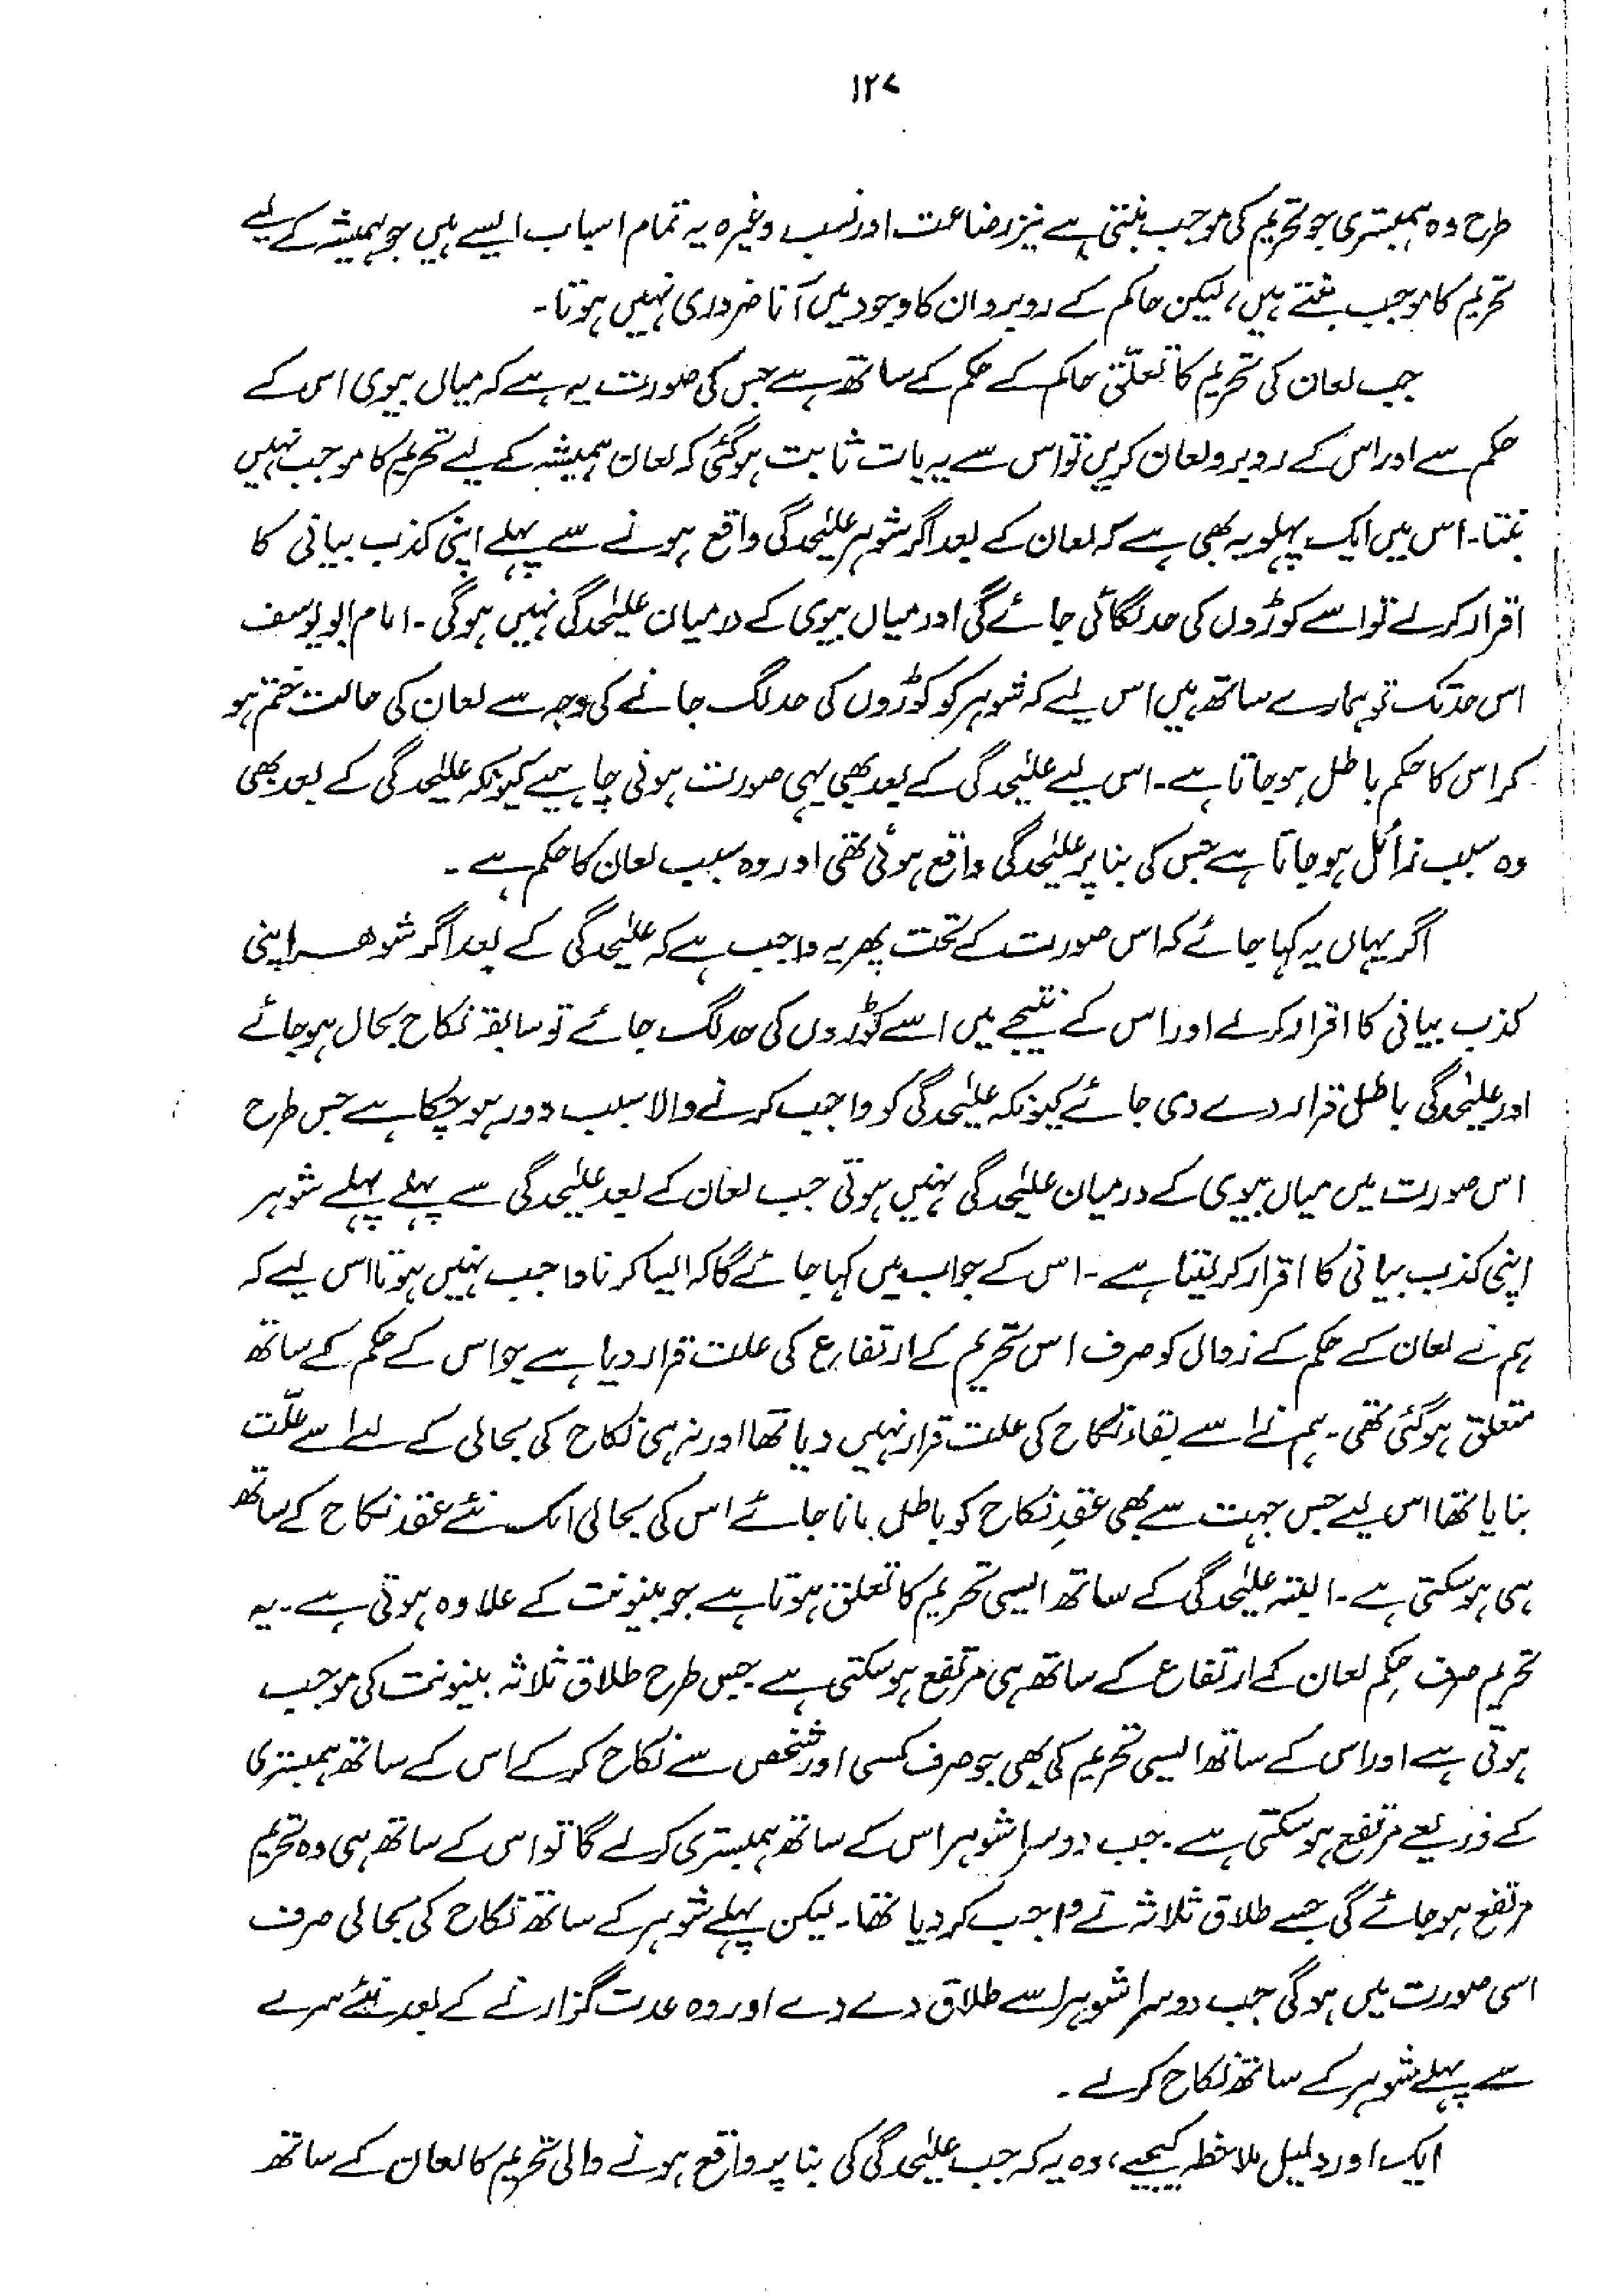 ۱۲۷
طرح وہ ہمبستری جو تحریم کی موجب بنتی ہے نیز رضاعت اور نسب وغیرہ یہ تمام اسباب ایسے ہیں جو ہمیشہ کے لیے
تحریم کا موجب بنتے ہیں، لیکن حاکم کے روبرو ان کا وجود میں آنا ضروری نہیں ہوتا۔
جب لعان کی تحریم کا تعلق حاکم کے حکم کے ساتھ ہے جس کی صورت یہ ہے کہ میاں بیوی اس کے
حکم سے اور اس کے روبرو لعان کریں تو اس سے یہ بات ثابت ہوگئی کہ لعان ہمیشہ کے لیے تحریم کا موجب نہیں
بنتا۔ اس میں ایک پہلو یہ بھی ہے کہ لعان کے بعد اگر شوہر علیٰحدگی واقع ہونے سے پہلے اپنی کذب بیانی کا
اقرار کر لے تو اسے کوڑوں کی حد لگائی جائے گی اور میاں بیوی کے درمیان علیٰحدگی نہیں ہوگی۔ امام ابو یوسف
اس حد تک تو ہمارے ساتھ ہیں اس لیے کہ شوہر کو کوڑوں کی حد لگ جانے کی وجہ سے لعان کی حالت ختم ہو
کر اس کا حکم باطل ہو جاتا ہے۔ اس لیے علیٰحدگی کے بعد بھی یہی صورت ہونی چاہیے کیونکہ علیٰحدگی کے بعد بھی
وہ سبب زائل ہو جاتا ہے جس کی بنا پر علیٰحدگی واقع ہوئی تھی اور وہ سبب لعان کا حکم ہے۔
اگر یہاں یہ کہا جائے کہ اس صورت کے تحت پھر یہ واجب ہے کہ علیٰحدگی کے بعد اگر شوھر اپنی
کذب بیانی کا اقرار کرلے اور اس کے نتیجے میں اسے کوڑوں کی حد لگ جائے تو سابقہ نکاح بحال ہو جائے
اور علیٰحدگی باطل قرار دے دی جائے کیونکہ علیٰحدگی کو واجب کرنے والا سبب دور ہو چکا ہے جس طرح
اس صورت میں میاں بیوی کے درمیان علیٰحدگی نہیں ہوتی جب لعان کے بعد علیٰحدگی سے پہلے پہلے شوہر
اپنی کذب بیانی کا اقرار کر لیتا ہے۔ اس کے جواب میں کہا جائے گا کہ ایسا کرنا واجب نہیں ہوتا اس لیے کہ
ہم نے لعان کے حکم کے زوال کو صرف اس تحریم کے ارتفاع کی علت قرار دیا ہے جو اس کے حکم کے ساتھ
متعلق ہوگئی تھی۔ ہم نے اسے بقاء نکاح کی علت قرار نہیں دیا تھا اور نہ ہی نکاح کی بحالی کے لئے اسے علّت
بنایا تھا اس لیے جس جہت سے بھی عقدِ نکاح کو باطل مانا جائے اس کی بحالی ایک نئے عقد نکاح کے ساتھ
ہی ہو سکتی ہے۔ البتہ علیٰحدگی کے ساتھ ایسی تحریم کا تعلق ہوتا ہے جو بینونت کے علاوہ ہوتی ہے۔ یہ
تحریم صرف حکم لعان کے ارتفاع کے ساتھ ہی مرتفع ہو سکتی ہے جس طرح طلاق ثلاثہ بینونت کی موجب
ہوتی ہے اور اس کے ساتھ ایسی تحریم کی بھی جو صرف کسی اور شخص سے نکاح کر کے اس کے ساتھ ہمبستری
کے ذریعے مرتفع ہو سکتی ہے۔ جب دوسرا شوہر اس کے ساتھ ہمبستری کر لے گا تو اس کے ساتھ ہی وہ تحریم
مرتفع ہو جائے گی جسے طلاق ثلاثہ نے واجب کر دیا تھا۔ لیکن پہلے شوہر کے ساتھ نکاح کی بحالی صرف
اسی صورت میں ہوگی جب دوسرا شوہر اسے طلاق دے دے اور وہ عدت گزارنے کے بعد نئے سرے
سے پہلے شوہر کے ساتھ نکاح کرلے۔
ایک اور دلیل ملاحظہ کیجیے، وہ یہ کہ جب علیٰحدگی کی بنا پر واقع ہونے والی تحریم کا لعان کے ساتھ